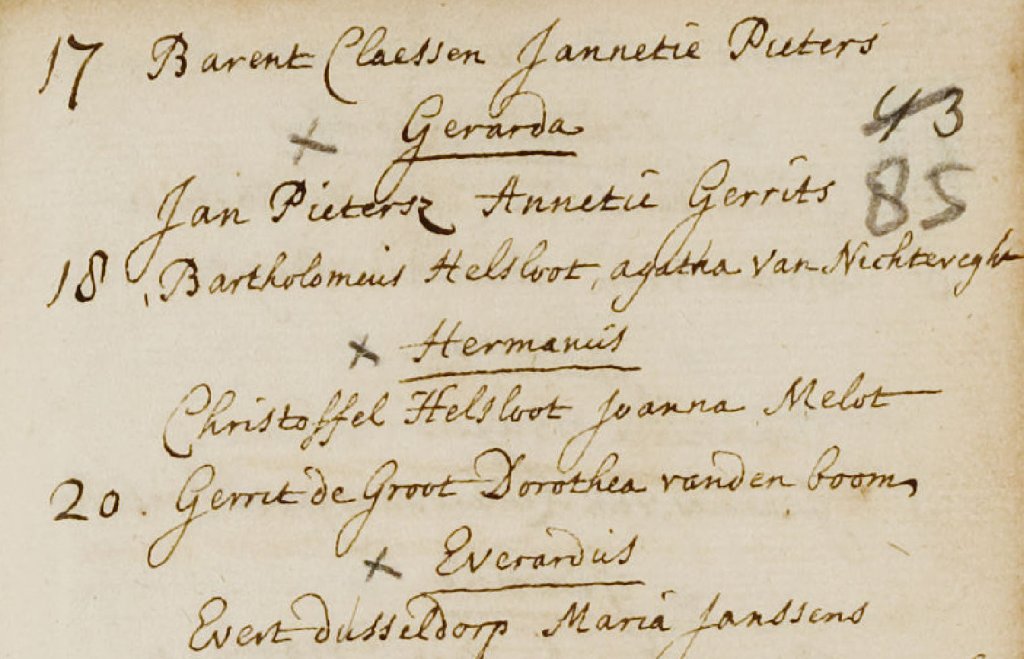 17 Barent Claessen Jannetie Pieters
× Gerarda 43
Jan Pietersz Annetie Gerrits 85
18 Bartholomeus Helsloot, agatha van Nichtevecht
× Hermanus
Christoffel Helsloot Joanna Melot
20. Gerrit de Groot Dorothea vanden boom,
× Everardus
Evert dusseldorp Maria Janssens